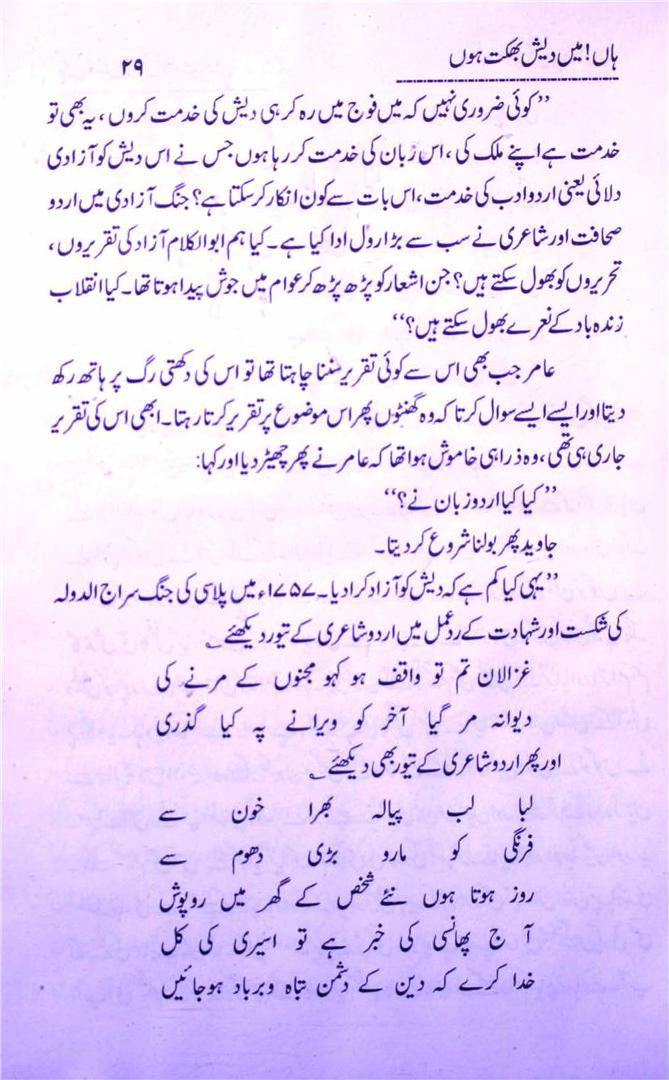 ہاں! میں دیش بھکت ہوں
۲۹
”کوئی ضروری نہیں کہ میں فوج میں رہ کر ہی دیش کی خدمت کروں، یہ بھی تو
خدمت ہے اپنے ملک کی، اس زبان کی خدمت کر رہا ہوں جس نے اس دیش کو آزادی
دلائی یعنی اردو ادب کی خدمت، اس بات سے کون انکار کر سکتا ہے؟ جنگ آزادی میں اردو
صحافت اور شاعری نے سب سے بڑا رول ادا کیا ہے۔ کیا ہم ابوالکلام آزاد کی تقریروں،
تحریروں کو بھول سکتے ہیں؟ جن اشعار کو پڑھ پڑھ کر عوام میں جوش پیدا ہوتا تھا۔ کیا انقلاب
زندہ باد کے نعرے بھول سکتے ہیں؟“
عامر جب بھی اس سے کوئی تقریر سننا چاہتا تھا تو اس کی دکھتی رگ پر ہاتھ رکھ
دیتا اور ایسے ایسے سوال کرتا کہ وہ گھنٹوں پھر اس موضوع پر تقریر کرتا رہتا۔ ابھی اس کی تقریر
جاری ہی تھی، وہ ذرا ہی خاموش ہوا تھا کہ عامر نے پھر چھیڑ دیا اور کہا:
”کیا کیا اردو زبان نے؟“
جاوید پھر بولنا شروع کر دیتا۔
”یہی کیا کم ہے کہ دیش کو آزاد کرا دیا۔ ۱۷۵۷ء میں پلاسی کی جنگ سراج الدولہ
کی شکست اور شہادت کے ردعمل میں اردو شاعری کے تیور دیکھئے ؎
غزالان تم تو واقف ہو کہو مجنوں کے مرنے کی
دیوانہ مر گیا آخر کو ویرانے پہ کیا گذری
اور پھر اردو شاعری کے تیور بھی دیکھئے ؎
لبا لب پیالہ بھرا خون سے
فرنگی کو مارو بڑی دھوم سے
روز ہوتا ہوں نئے شخص کے گھر میں روپوش
آج پھانسی کی خبر ہے تو اسیری کی کل
خدا کرے کہ دین کے دشمن تباہ وبرباد ہوجائیں